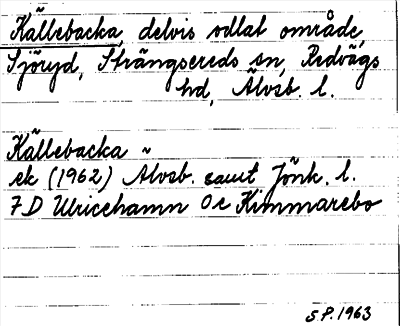 Källebacka, delvis odlat område,
Sjöryd, Strängsereds sn, Redvägs
hd, Älvsb. l.
Källebacka "
ek (1962) Älvsb. samt Jönk. l.
7 D Ulricehamn 0 e Kimmarebo
S.P. 1963